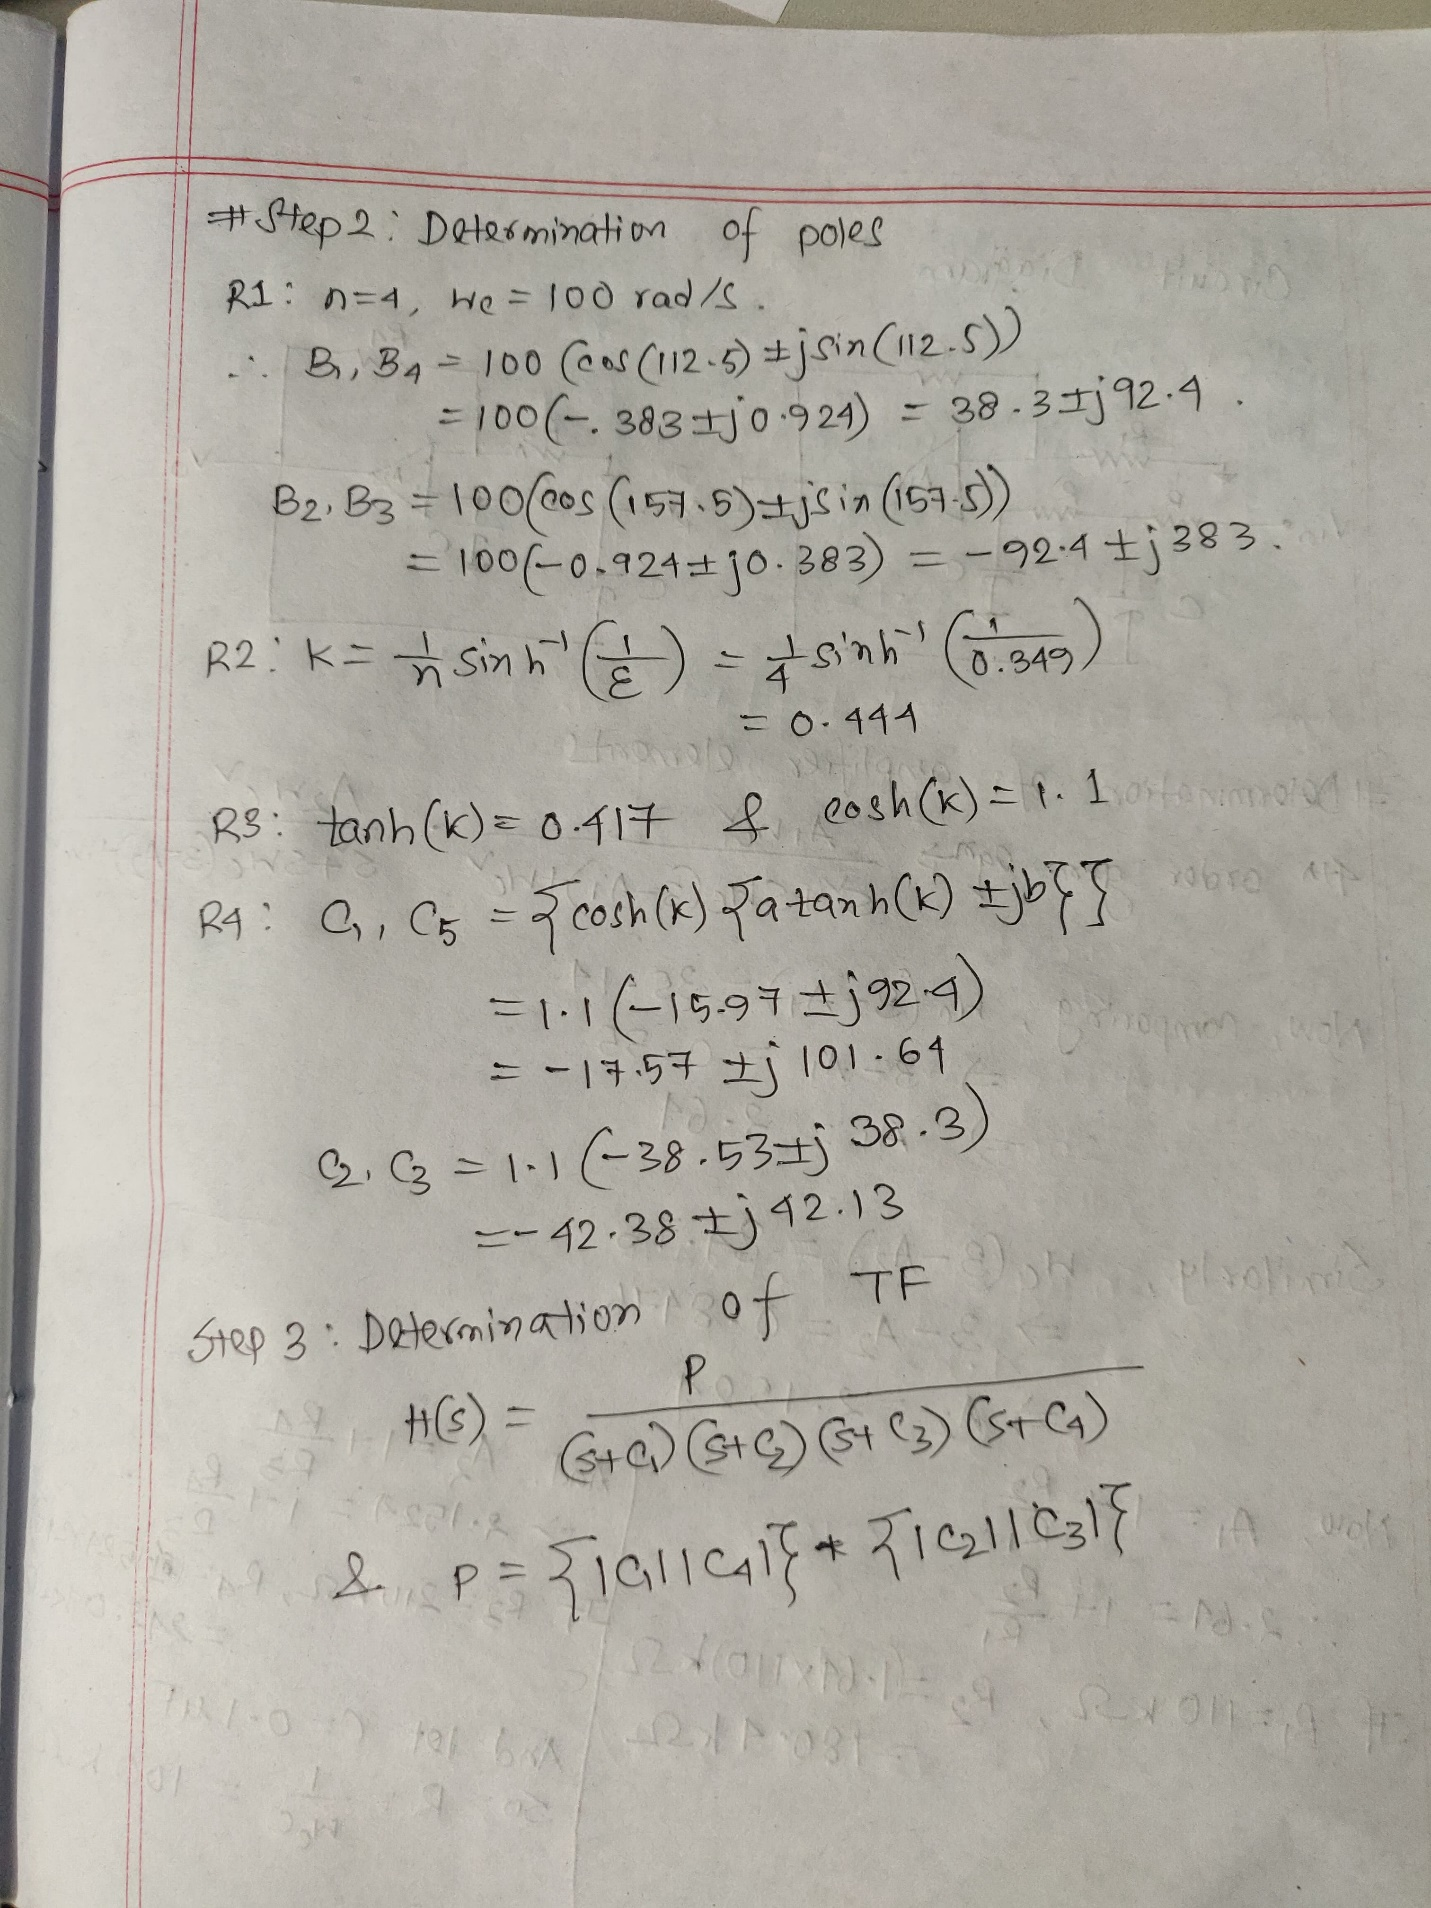 # Step 2: Determination of poles
R1: n=4, wc = 100 rad/s.
∴ B1, B4 = 100 (cos(112.5) ± jsin(112.5))
= 100(-.383 ± j0.924) = 38.3 ± j92.4.
B2, B3 = 100(cos(157.5) ± jsin(157.5))
= 100(-0.924 ± j0.383) = -92.4 ± j383.
R2: K = 1/n sinh⁻¹(1/ε) = 1/4 sinh⁻¹(1/0.349)
= 0.444
R3: tanh(K) = 0.417 & cosh(K) = 1.1
R4: C1, C5 = {cosh(K) {a tanh(K) ± jb}}
= 1.1(-15.97 ± j92.4)
= -17.57 ± j 101.64
C2, C3 = 1.1(-38.53 ± j 38.3)
= -42.38 ± j42.13
Step 3: Determination of TF
H(S) = P / (S+C1)(S+C2)(S+C3)(S+C4)
& P = {|C1||C4|} * {|C2||C3|}